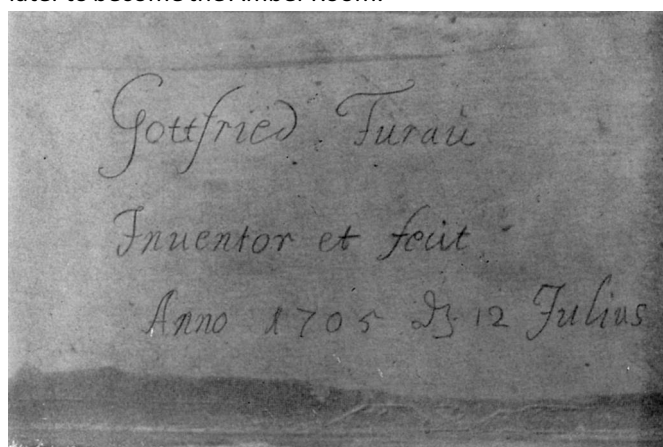 later to become the Amber Room.
Gottfried Turaü
Inuentor et fecit
Anno 1705 dȝ 12 Julius